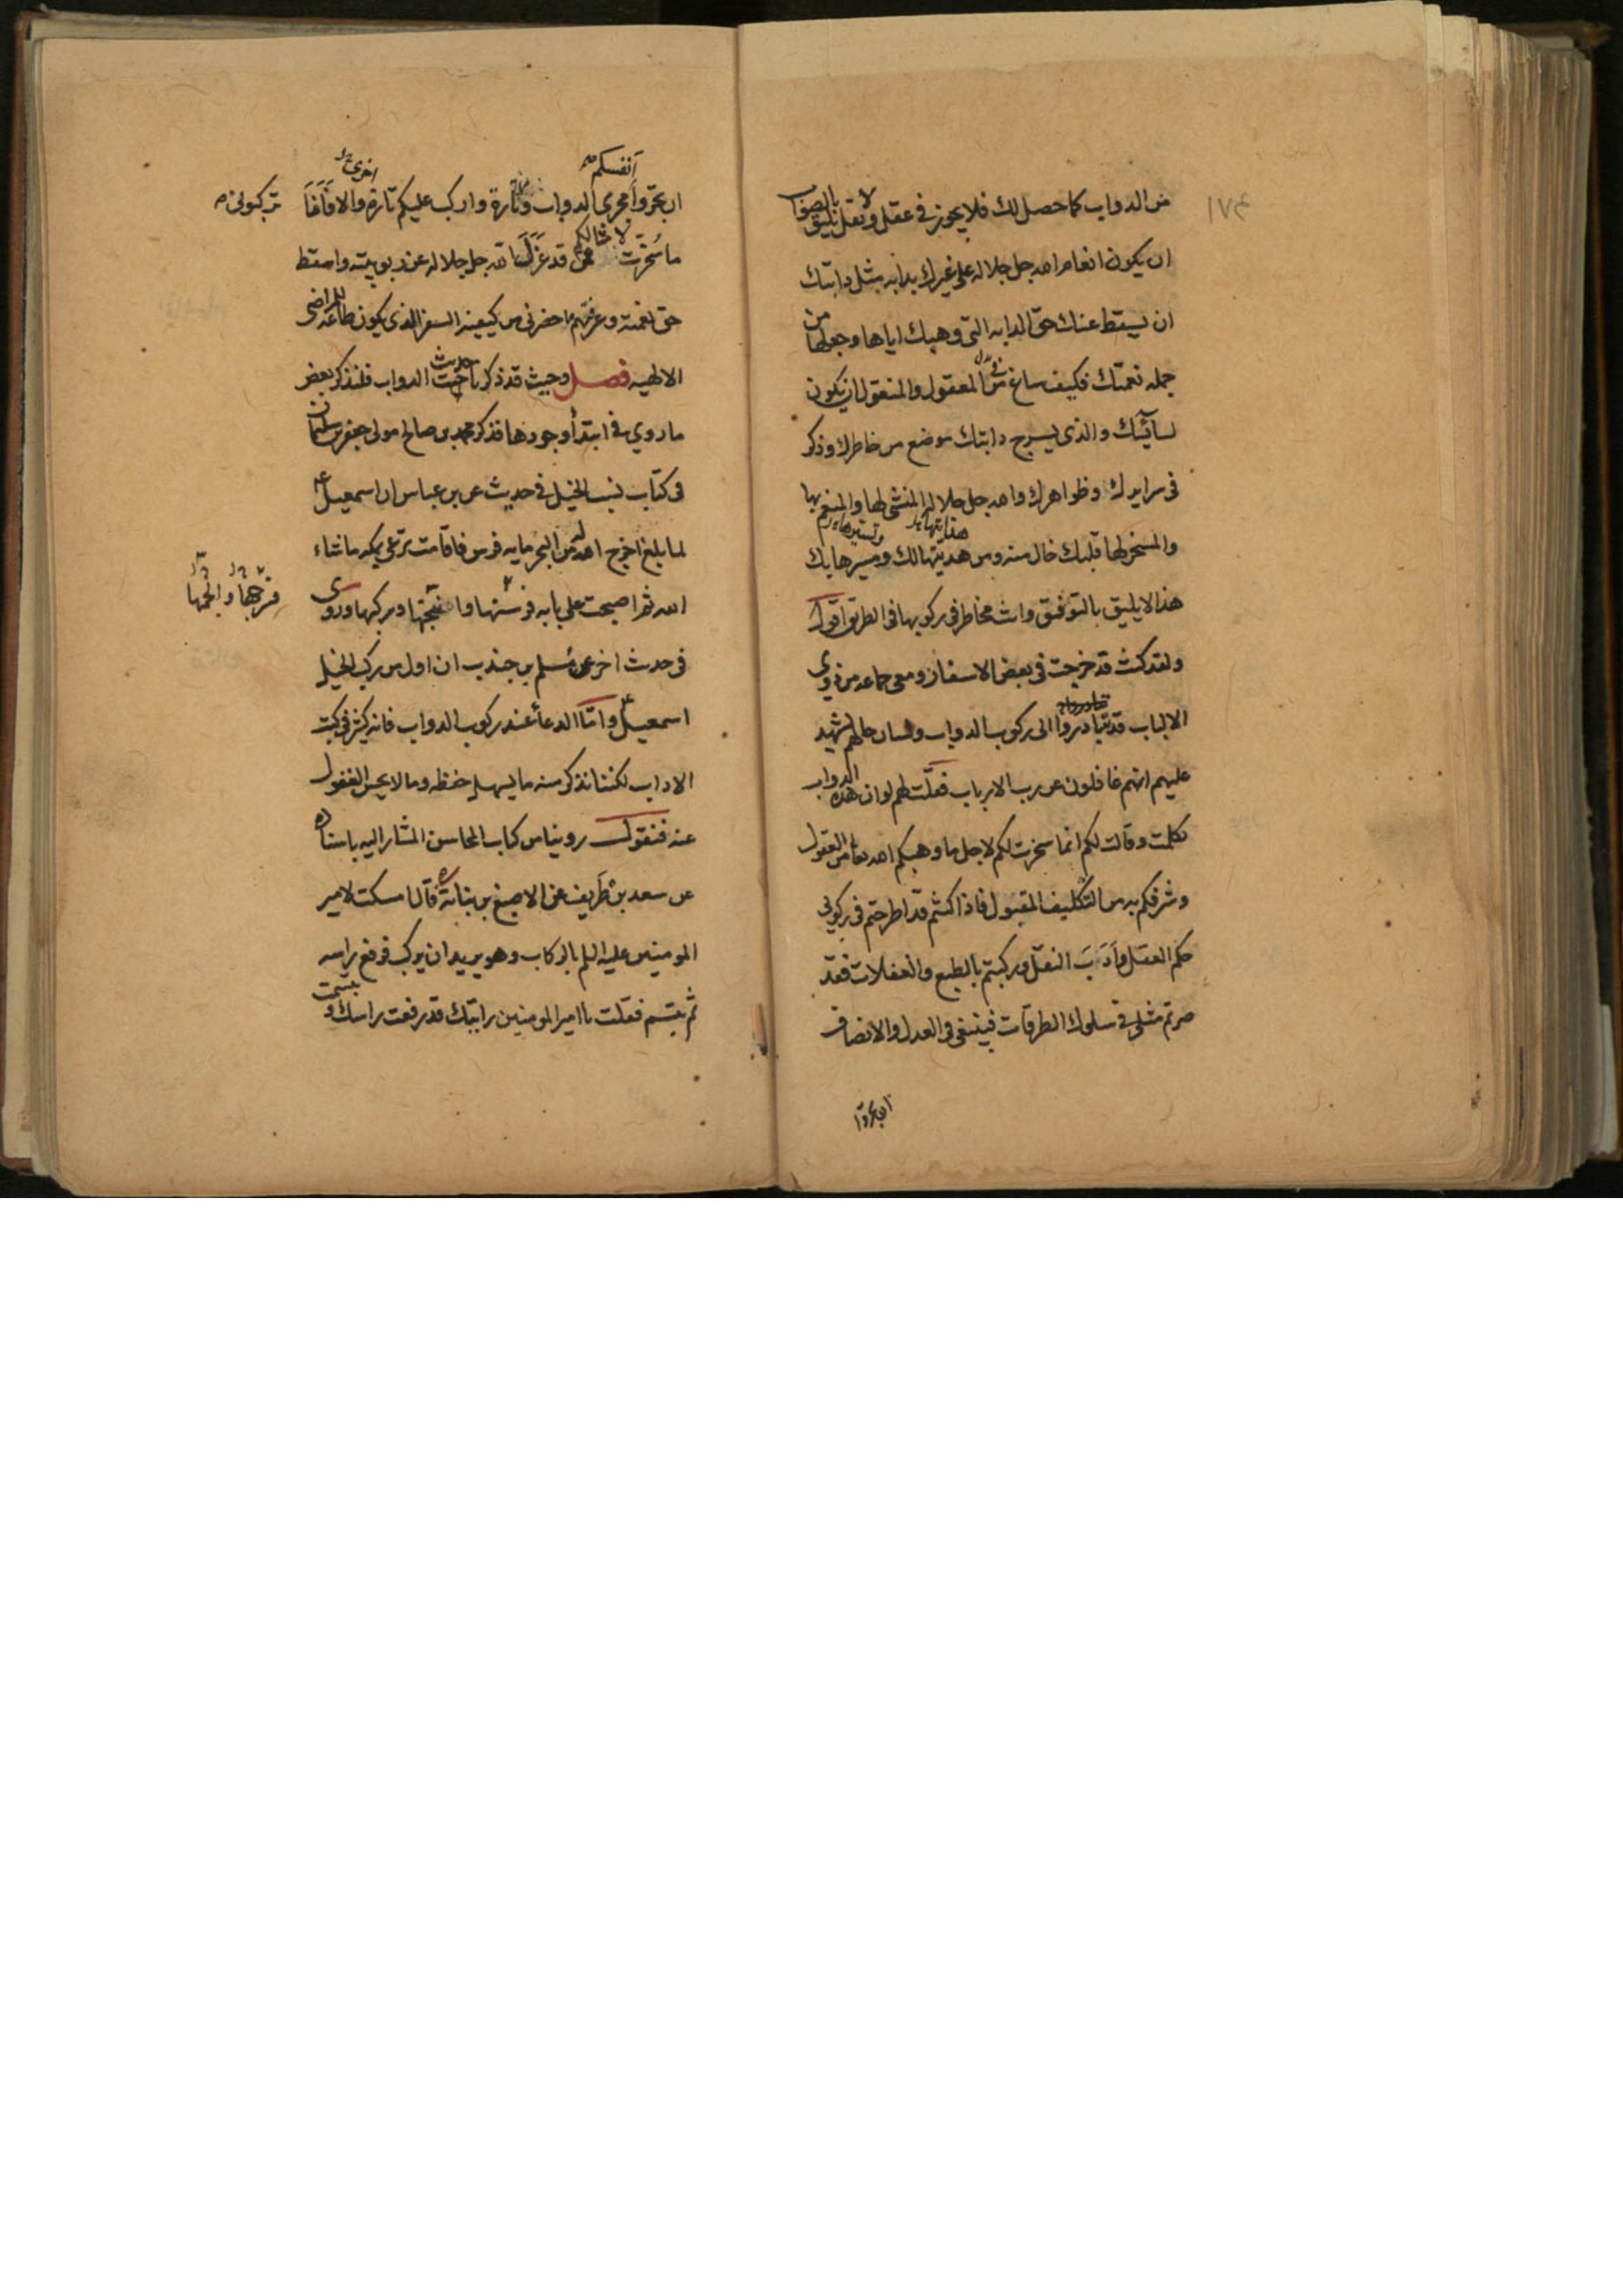 من الدواب كما حصل لك فلا يجوز في عقل ولا نقل يليق بالصواب
ان يكون انعام الله جل جلاله على غيرك بدابه مثل دابتك
ان يسقط عنك حق الدابه التي وهبك اياها وجعلها من
جمله نعمتك فكيف ساغ في المعقول والمنقول ان يكون
لسائسك والذي يسرج دابتك موضع من خاطرك وذكر
في سرايرك وظواهرك والله جل جلاله المنشي لها والمنعم بها
هدايتها وتسييرها
والمسخر لها قلبك خال منه ومن هديتها لك ومسيرها بك
هذا لا يليق بالتوفيق وانت مخاطر في ركوبها في الطريق اقول
ولقد كنت قد خرجت في بعض الاسفار ومعى جماعه من ذوى
الالباب قد تبادروا الى ركوب الدواب ولسان حالهم يشهد
عليهم انهم غافلون عن رب الارباب فقلت لهم لو ان هذه الدواب
تكلمت وقالت لكم انما سخرت لكم لاجل ما وهبكم الله تعا من العقول
وشرفكم به من التكليف المقبول فاذا كنتم قد اطرحتم في ركوبي
حكم العقل وادب النقل وركبتم بالطبع والغفلات فقد
صرتم مثلي في سلوك الطرقات فينبغي في العدل والانصاف
ان تجروا
انفسكم
اخرى
ان تجروا مجرى الدواب وتارة واركب عليكم تارة والا فانا تركبوني
لامثالكم
ما سخرت ممن قد عزل الله جل جلاله عن ربوبيته واسقط
حق نعمته وعرفتهم ما حضرني من كيفية السفر الذي يكون طاعة للمراضي
الالهيه فصل وحيث قد ذكرنا حديث الدواب فلنذكر بعض
ما روي في ابتدأ وجودها فذكر محمد بن صالح مولى جعفر بن سليمان
في كتاب نسب الخيل في حديث عن بن عباس ان اسمعيل
لما بلغ اخرج الله له من البحر مايه فرس فاقامت ترعى بمكه ما شاء
الله ثم اصبحت على بابه فرسنها وانتجها وركبها وروى
في حدث اخر عن مسلم بن جندب ان اول من ركب الخيل
اسمعيل واما الدعأ عند ركوب الدواب فانه كثير في كتب
الاداب لكننا نذكر منه ما يسهل حفظه وما لا يحسن الغفول
عنه فنقول روينا من كتاب المحاسن المشار اليه باسناده
عن سعد بن طريف عن الاصبغ بن نباتة قال امسكت لامير
المومنين عليه السلم بالركاب وهو يريد ان يركب فرفع راسه
تبسمت
ثم تبسم فقلت يا امير المومنين رايتك قد رفعت راسك و